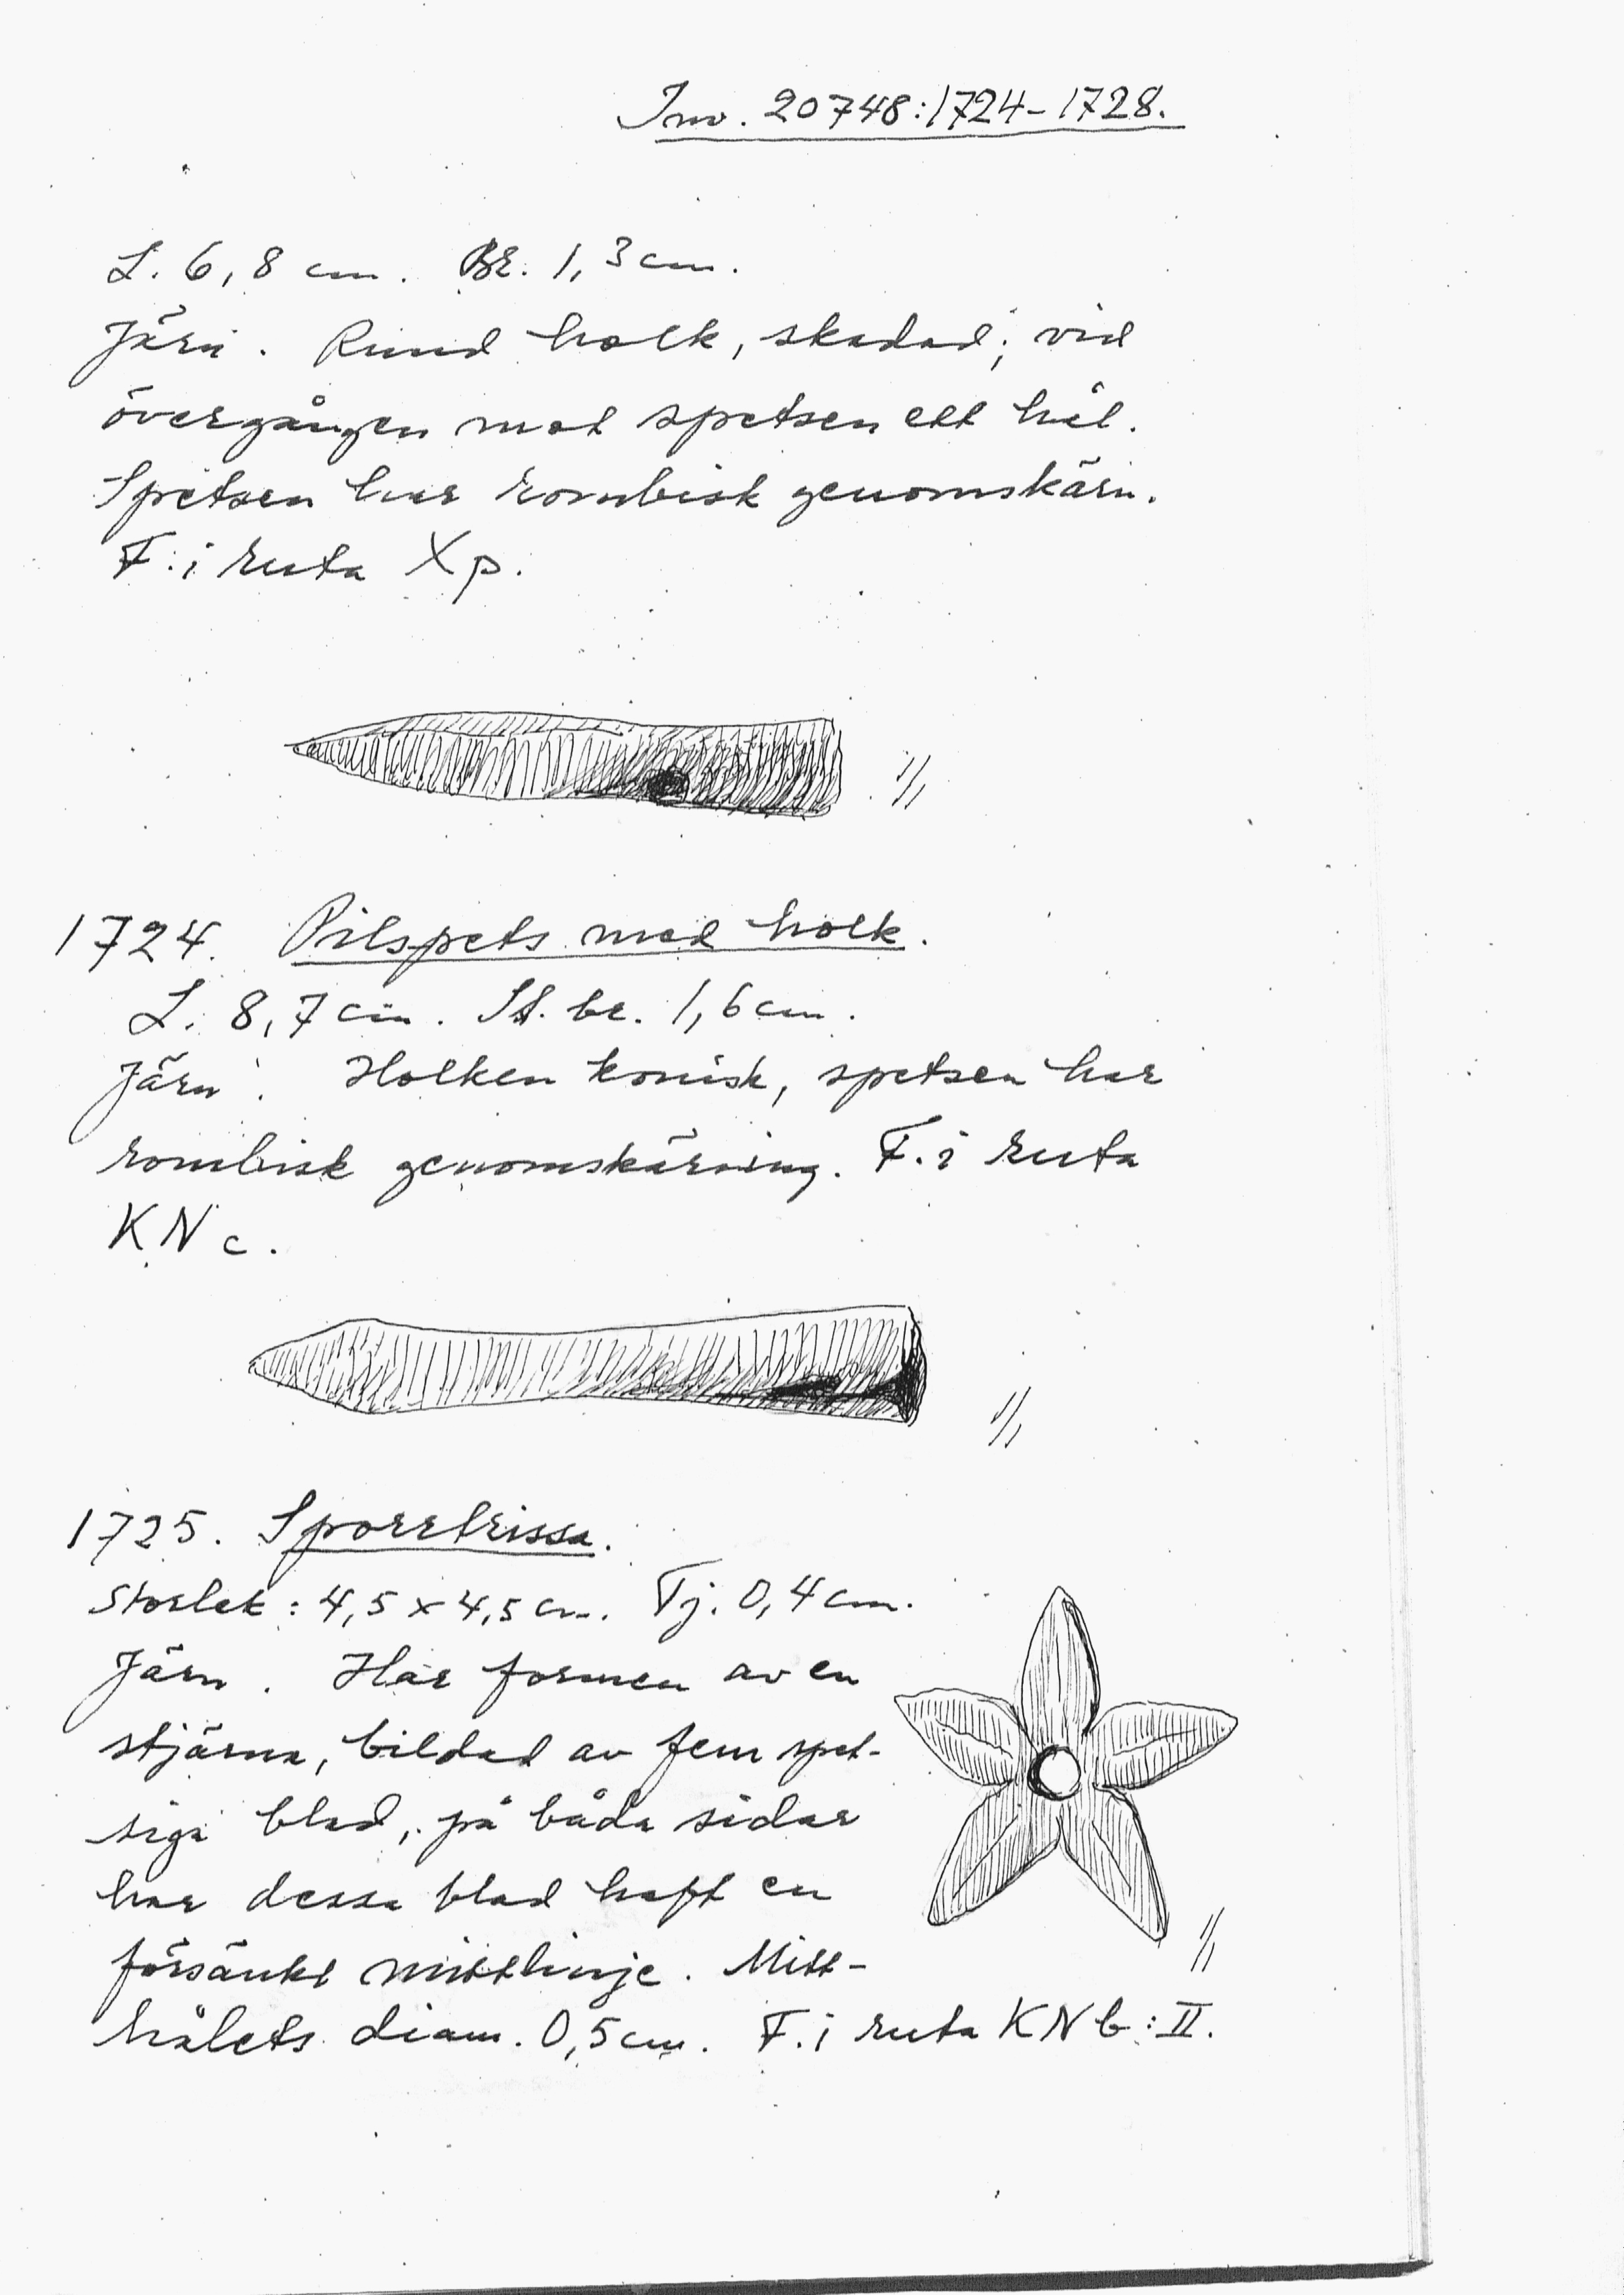 Inv. 20748:1724-1728.
L. 6,8 cm. Br. 1,3 cm.
Järn. Rund holk, skadad; vid
övergången mot spetsen ett hål.
Spetsen har rombisk genomskärn.
F. i ruta Xp.
1/1
1724. Pilspets med holk.
L. 8,7 cm. St. br. 1,6 cm.
Järn. Holken konisk, spetsen har
rombisk genomskärning. F. i ruta
KN c.
1/1
1725. Sporrtrissa.
Storlek: 4,5 x 4,5 cm. Tj. 0,4 cm.
Järn. Har formen av en
stjärna, bildad av fem spet-
siga blad, på båda sidor
har dessa blad haft en
försänkt mittlinje. Mitt-
hålets diam. 0,5 cm. F. i ruta KN b:II.
1/1